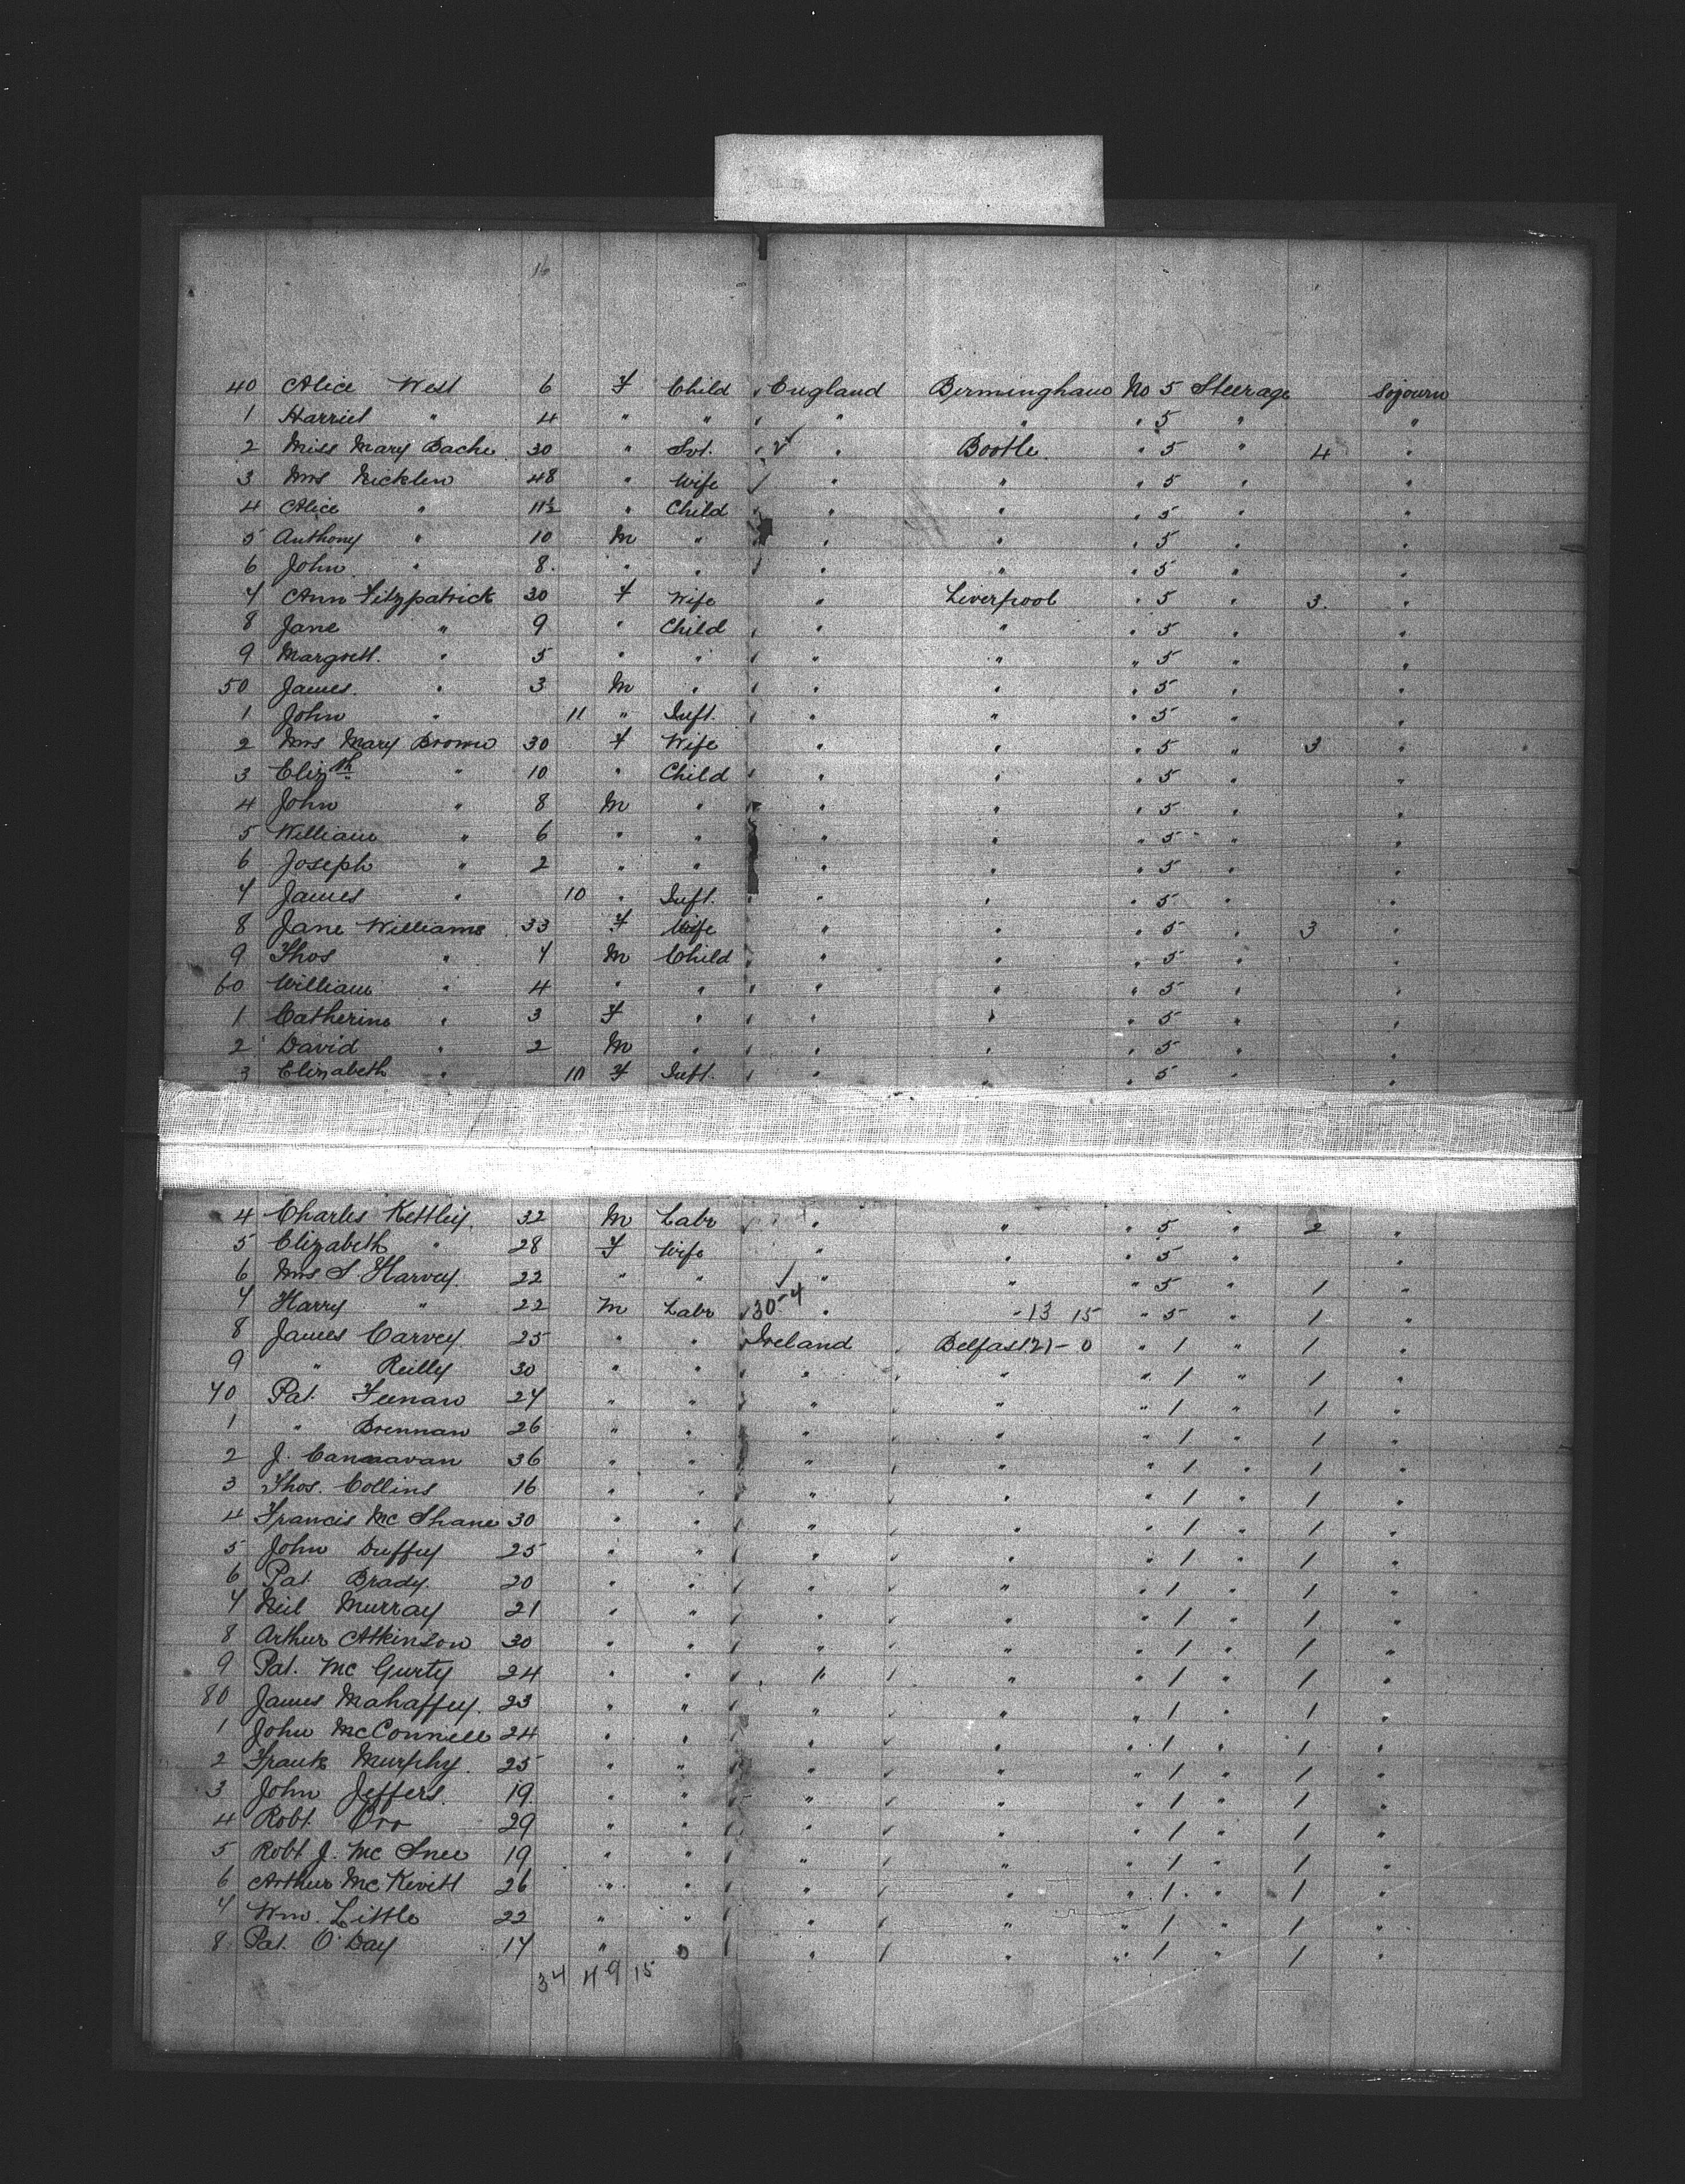 16
40 Alice West 6 F Child England Birmingham No 5 Steerage Sojourn
1 Harriet " 4 " " " " " 5 " "
2 Miss Mary Bache 30 " Svt. " Bootle " 5 " 4 "
3 Mrs Nicklin 48 " Wife " " " 5 " "
4 Alice " 11½ " Child " " " 5 " "
5 Anthony " 10 M " " " " 5 " "
6 John " 8 " " " " " 5 " "
7 Ann Fitzpatrick 30 F Wife " Liverpool " 5 " 3 "
8 Jane " 9 " Child " " " 5 " "
9 Margrett. " 5 " " " " " 5 " "
50 James. " 3 M " " " " 5 " "
1 John " 11 " Inft. " " " 5 " "
2 Mrs Mary Brown 30 F Wife " " " 5 " 3 "
3 Elizth " 10 " Child " " " 5 " "
4 John " 8 M " " " " 5 " "
5 William " 6 " " " " " 5 " "
6 Joseph " 2 " " " " " 5 " "
7 James " 10 " Inft. " " " 5 " "
8 Jane Williams 33 F Wife " " " 5 " 3 "
9 Thos " 7 M Child " " " 5 " "
60 William " 4 " " " " " 5 " "
1 Catherine " 3 F " " " " 5 " "
2 David " 2 M " " " " 5 " "
3 Elizabeth " 10 F Inft. " " " 5 " "
4 Charles Kettley 32 M Labr " " " 5 " 2 "
5 Elizabeth " 28 F Wife " " " 5 " "
6 Mrs S Harvey 22 " " " " " 5 " 1 "
7 Harry " 22 M Labr 30-4 " - 13 15 " 5 " 1 "
8 James Carvey 25 " " Ireland Belfast 21-0 " 1 " 1 "
9 " Reilly 30 " " " " " 1 " 1 "
70 Pat. Feenan 27 " " " " " 1 " 1 "
1 " Brennan 26 " " " " " 1 " 1 "
2 J. Canavan 36 " " " " " 1 " 1 "
3 Thos. Collins 16 " " " " " 1 " 1 "
4 Francis Mc Shane 30 " " " " " 1 " 1 "
5 John Duffy 25 " " " " " 1 " 1 "
6 Pat. Brady 20 " " " " " 1 " 1 "
7 Neil Murray 21 " " " " " 1 " 1 "
8 Arthur Atkinson 30 " " " " " 1 " 1 "
9 Pat. Mc Gurty 24 " " " " " 1 " 1 "
80 James Mahaffey. 23 " " " " " 1 " 1 "
1 John McConnell 24 " " " " " 1 " 1 "
2 Frank Murphy. 25 " " " " " 1 " 1 "
3 John Jeffers. 19 " " " " " 1 " 1 "
4 Robt. Orr 29 " " " " " 1 " 1 "
5 Robt J. Mc Snee 19 " " " " " 1 " 1 "
6 Arthur Mc Kevitt 26 " " " " " 1 " 1 "
7 Wm. Little 22 " " " " " 1 " 1 "
8 Pat. O'Day 17 " " " " " 1 " 1 "
34 49 15 0